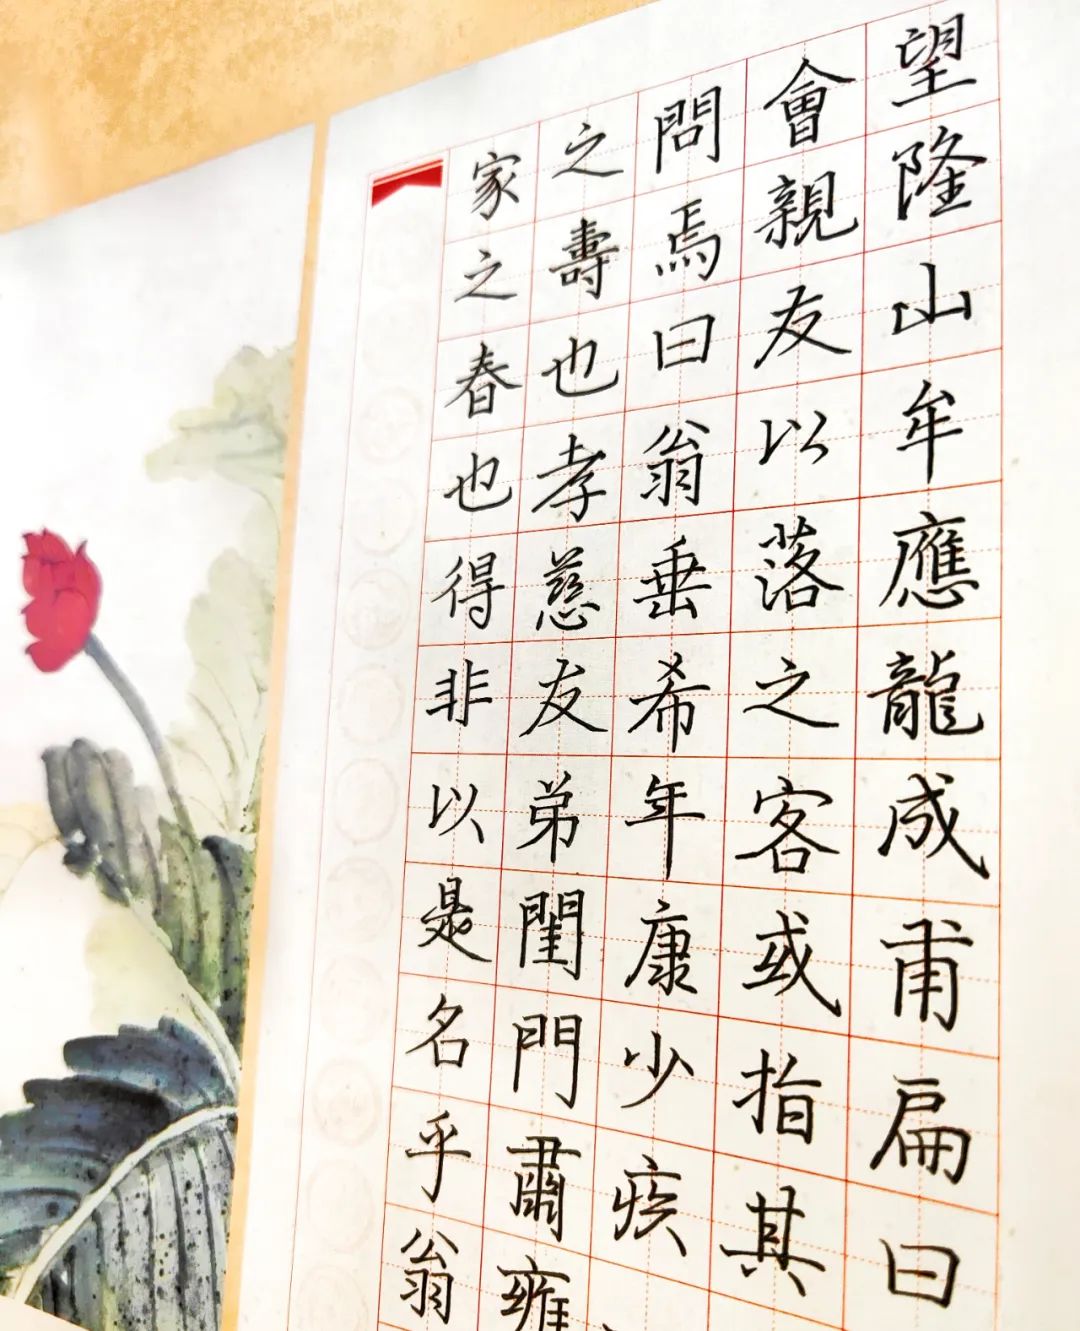 望隆山牟應龍成甫扁曰
會親友以落之客或指其
問焉曰翁垂希年康少疾
之壽也孝慈友弟閨門肅雍
家之春也得非以是名乎翁